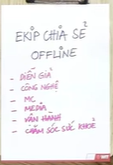 EKIP CHIA SẺ
OFFLINE
- DIỄN GIẢ
- CÔNG NGHỆ
- MC
- MEDIA
- VẬN HÀNH
- CHĂM SÓC SỨC KHOẺ